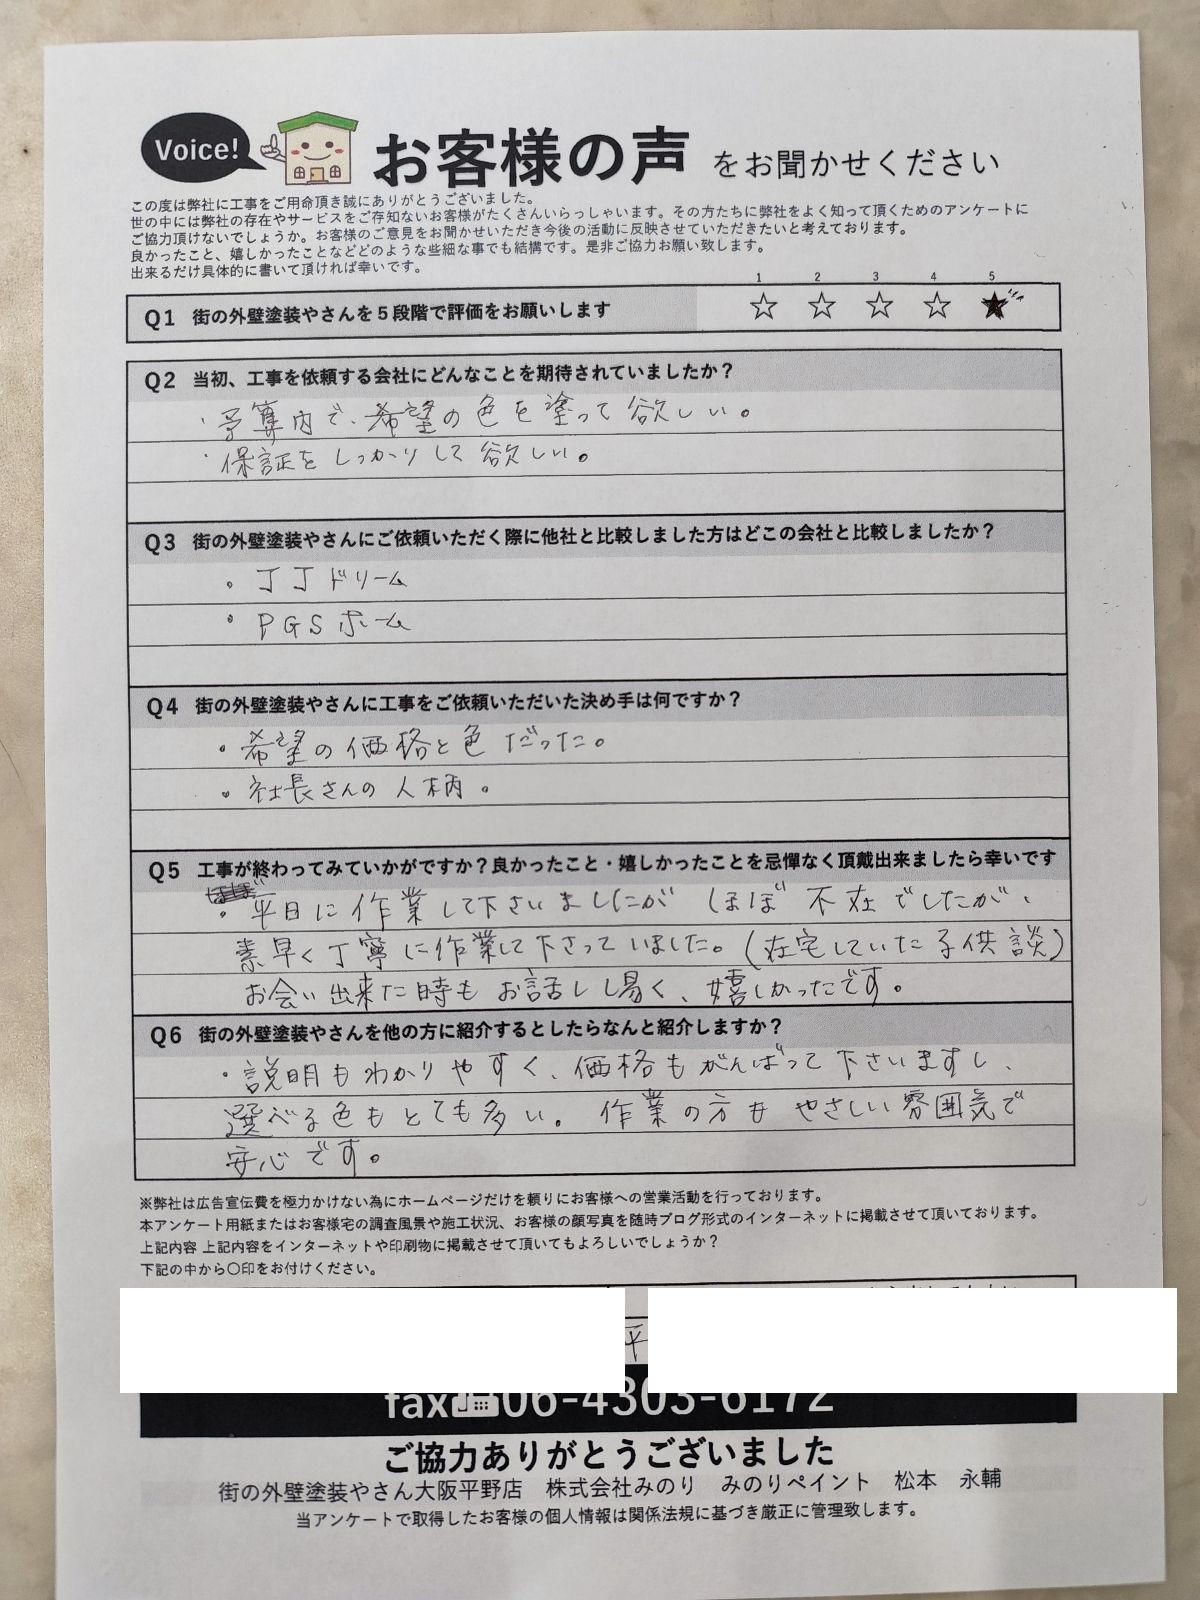 Voice!
お客様の声 をお聞かせください
この度は弊社に工事をご用命頂き誠にありがとうございました。
世の中には弊社の存在やサービスをご存知ないお客様がたくさんいらっしゃいます。その方たちに弊社をよく知って頂くためのアンケートに
ご協力頂けないでしょうか。お客様のご意見をお聞かせいただき今後の活動に反映させていただきたいと考えております。
良かったこと、嬉しかったことなどどのような些細な事でも結構です。是非ご協力お願い致します。
出来るだけ具体的に書いて頂ければ幸いです。
1 2 3 4 5
Q1 街の外壁塗装やさんを5段階で評価をお願いします ☆ ☆ ☆ ☆ ★
Q2 当初、工事を依頼する会社にどんなことを期待されていましたか？
・予算内で、希望の色を塗って欲しい。
・保証をしっかりして欲しい。
Q3 街の外壁塗装やさんにご依頼いただく際に他社と比較しました方はどこの会社と比較しましたか？
・JJドリーム
・PGSホーム
Q4 街の外壁塗装やさんに工事をご依頼いただいた決め手は何ですか？
・希望の価格と色だった。
・社長さんの人柄。
Q5 工事が終わってみていかがですか？良かったこと・嬉しかったことを忌憚なく頂戴出来ましたら幸いです
・平日に作業して下さいましたが ほぼ不在でしたが、
素早く丁寧に作業して下さっていました。(在宅していた子供談)
お会い出来た時もお話しし易く、嬉しかったです。
Q6 街の外壁塗装やさんを他の方に紹介するとしたらなんと紹介しますか？
・説明もわかりやすく、価格もがんばって下さいますし、
選べる色もとても多い。作業の方も やさしい雰囲気で
安心です。
※弊社は広告宣伝費を極力かけない為にホームページだけを頼りにお客様への営業活動を行っております。
本アンケート用紙またはお客様宅の調査風景や施工状況、お客様の顔写真を随時ブログ形式のインターネットに掲載させて頂いております。
上記内容 上記内容をインターネットや印刷物に掲載させて頂いてもよろしいでしょうか？
下記の中から〇印をお付けください。
平
fax 06-4303-6172
ご協力ありがとうございました
街の外壁塗装やさん大阪平野店 株式会社みのり みのりペイント 松本 永輔
当アンケートで取得したお客様の個人情報は関係法規に基づき厳正に管理致します。